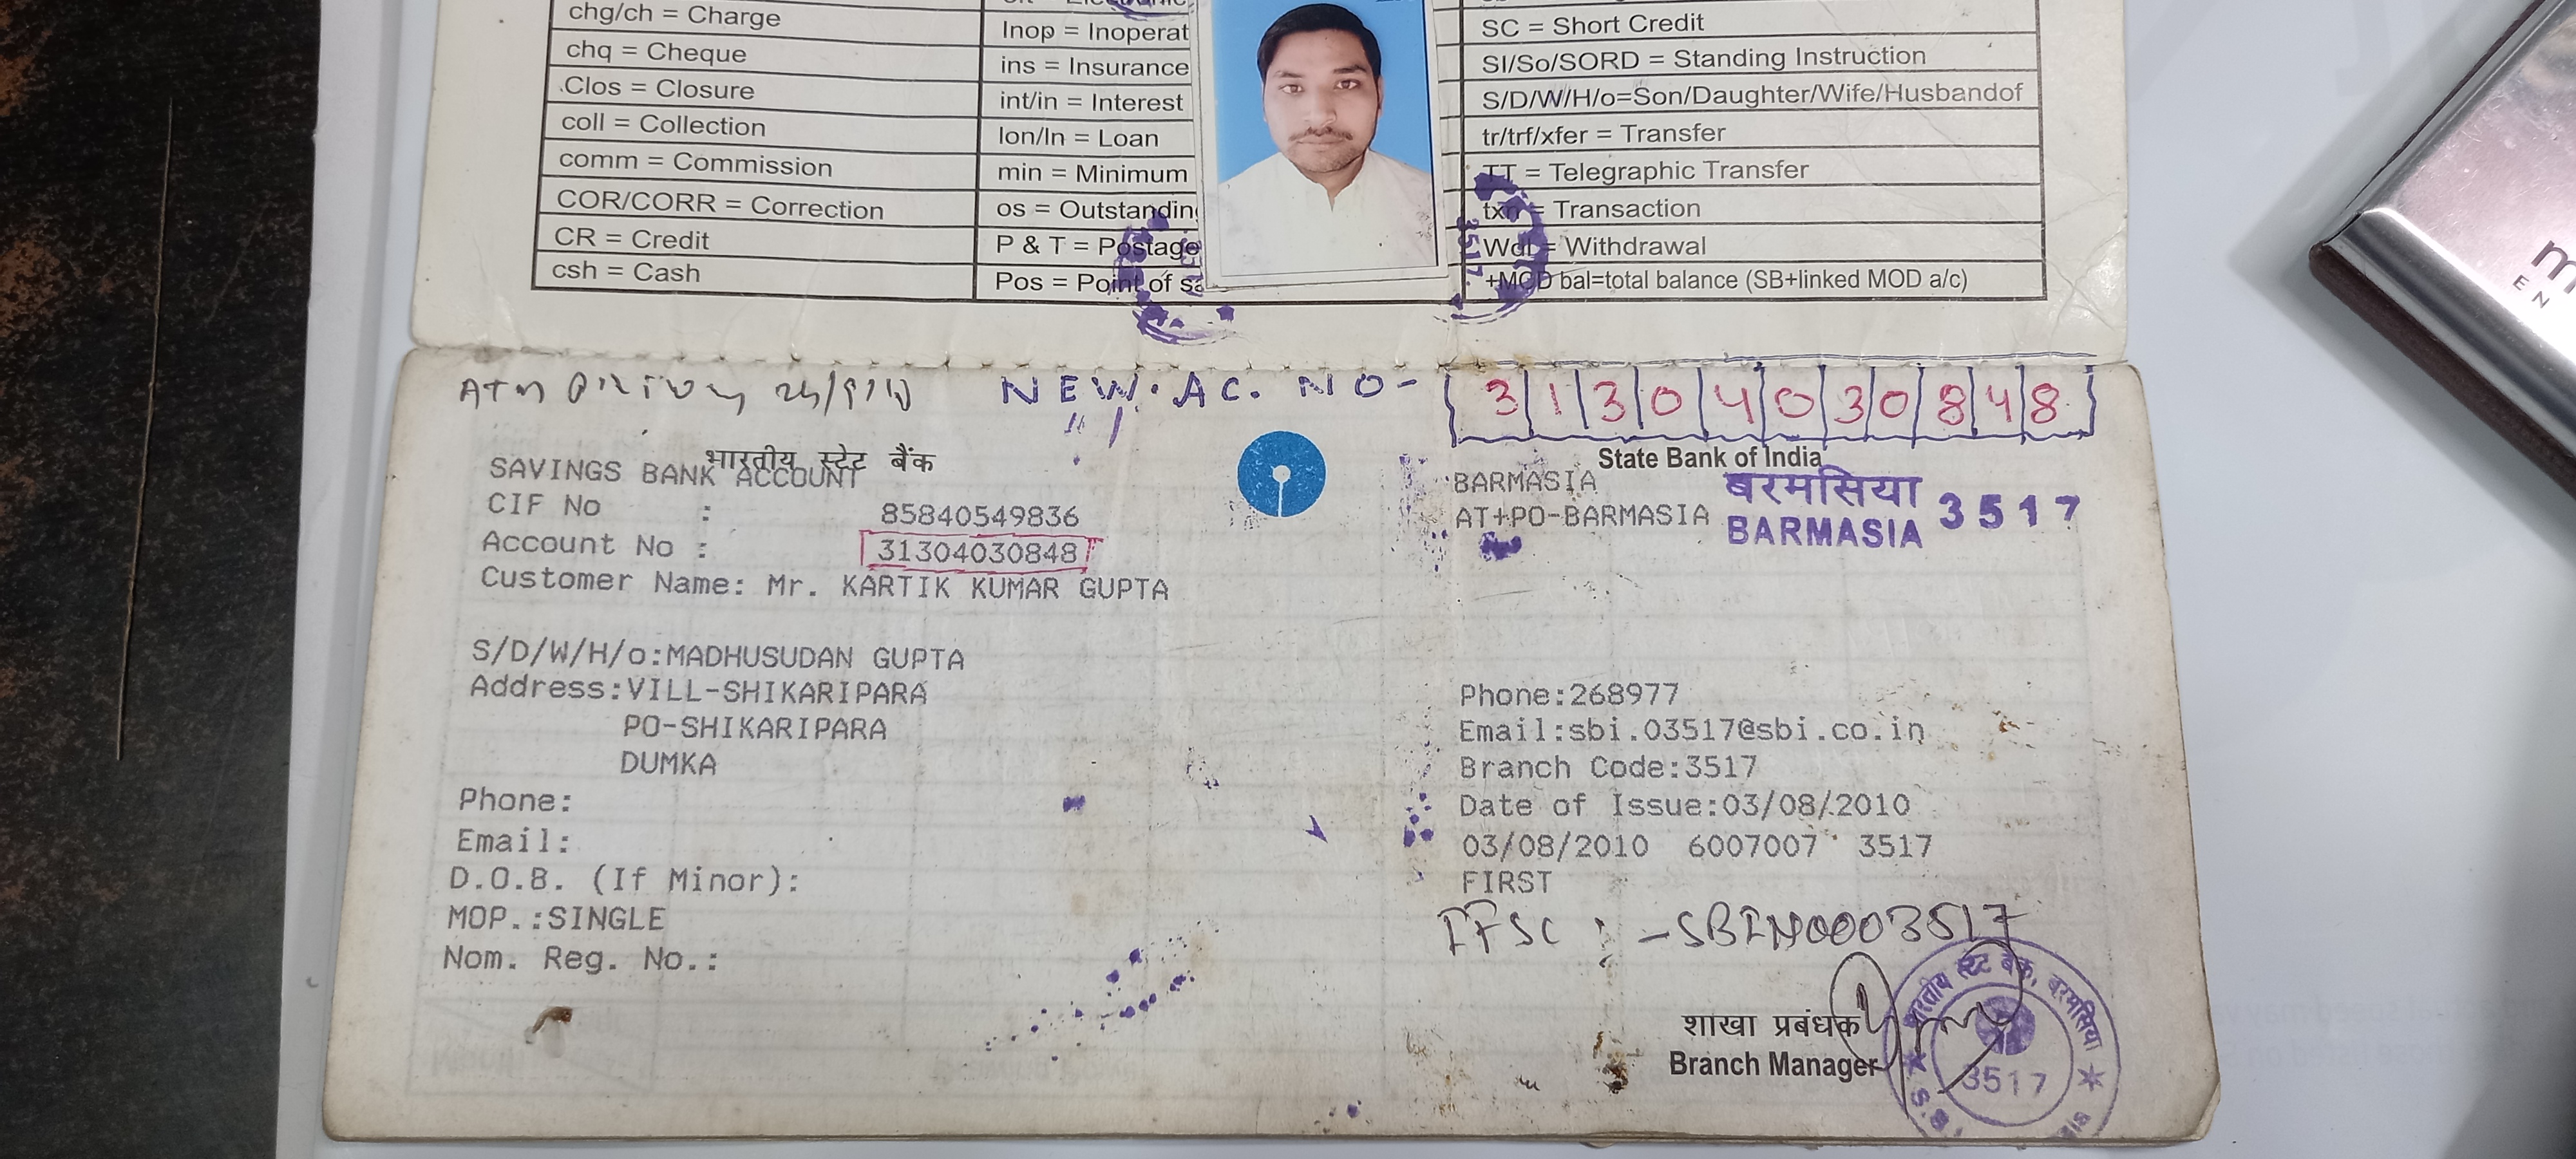 chg/ch = Charge
chq = Cheque
Clos = Closure
coll = Collection
comm = Commission
COR/CORR = Correction
CR = Credit
csh = Cash
Inop = Inoperat
ins = Insurance
int/in = Interest
lon/ln = Loan
min = Minimum
os = Outstanding
P & T = Postage
Pos = Point of sa
SC = Short Credit
SI/So/SORD = Standing Instruction
S/D/W/H/o=Son/Daughter/Wife/Husbandof
tr/trf/xfer = Transfer
TT = Telegraphic Transfer
txn = Transaction
Wdl = Withdrawal
+MOD bal=total balance (SB+linked MOD a/c)
3517
ATM
NEW. AC. NO- 31304030848
भारतीय स्टेट बैंक
State Bank of India
SAVINGS BANK ACCOUNT
CIF No : 85840549836
Account No : 31304030848
Customer Name: Mr. KARTIK KUMAR GUPTA
S/D/W/H/o:MADHUSUDAN GUPTA
Address:VILL-SHIKARIPARA
PO-SHIKARIPARA
DUMKA
Phone:
Email:
D.O.B. (If Minor):
MOP.:SINGLE
Nom. Reg. No.:
BARMASIA
AT+PO-BARMASIA
बरमसिया
BARMASIA 3517
Phone:268977
Email:sbi.03517@sbi.co.in
Branch Code:3517
Date of Issue:03/08/2010
03/08/2010 6007007 3517
FIRST
IFSC : -SBIN0003517
शाखा प्रबंधक
Branch Manager
भारतीय स्टेट बैंक, बरमसिया
3517